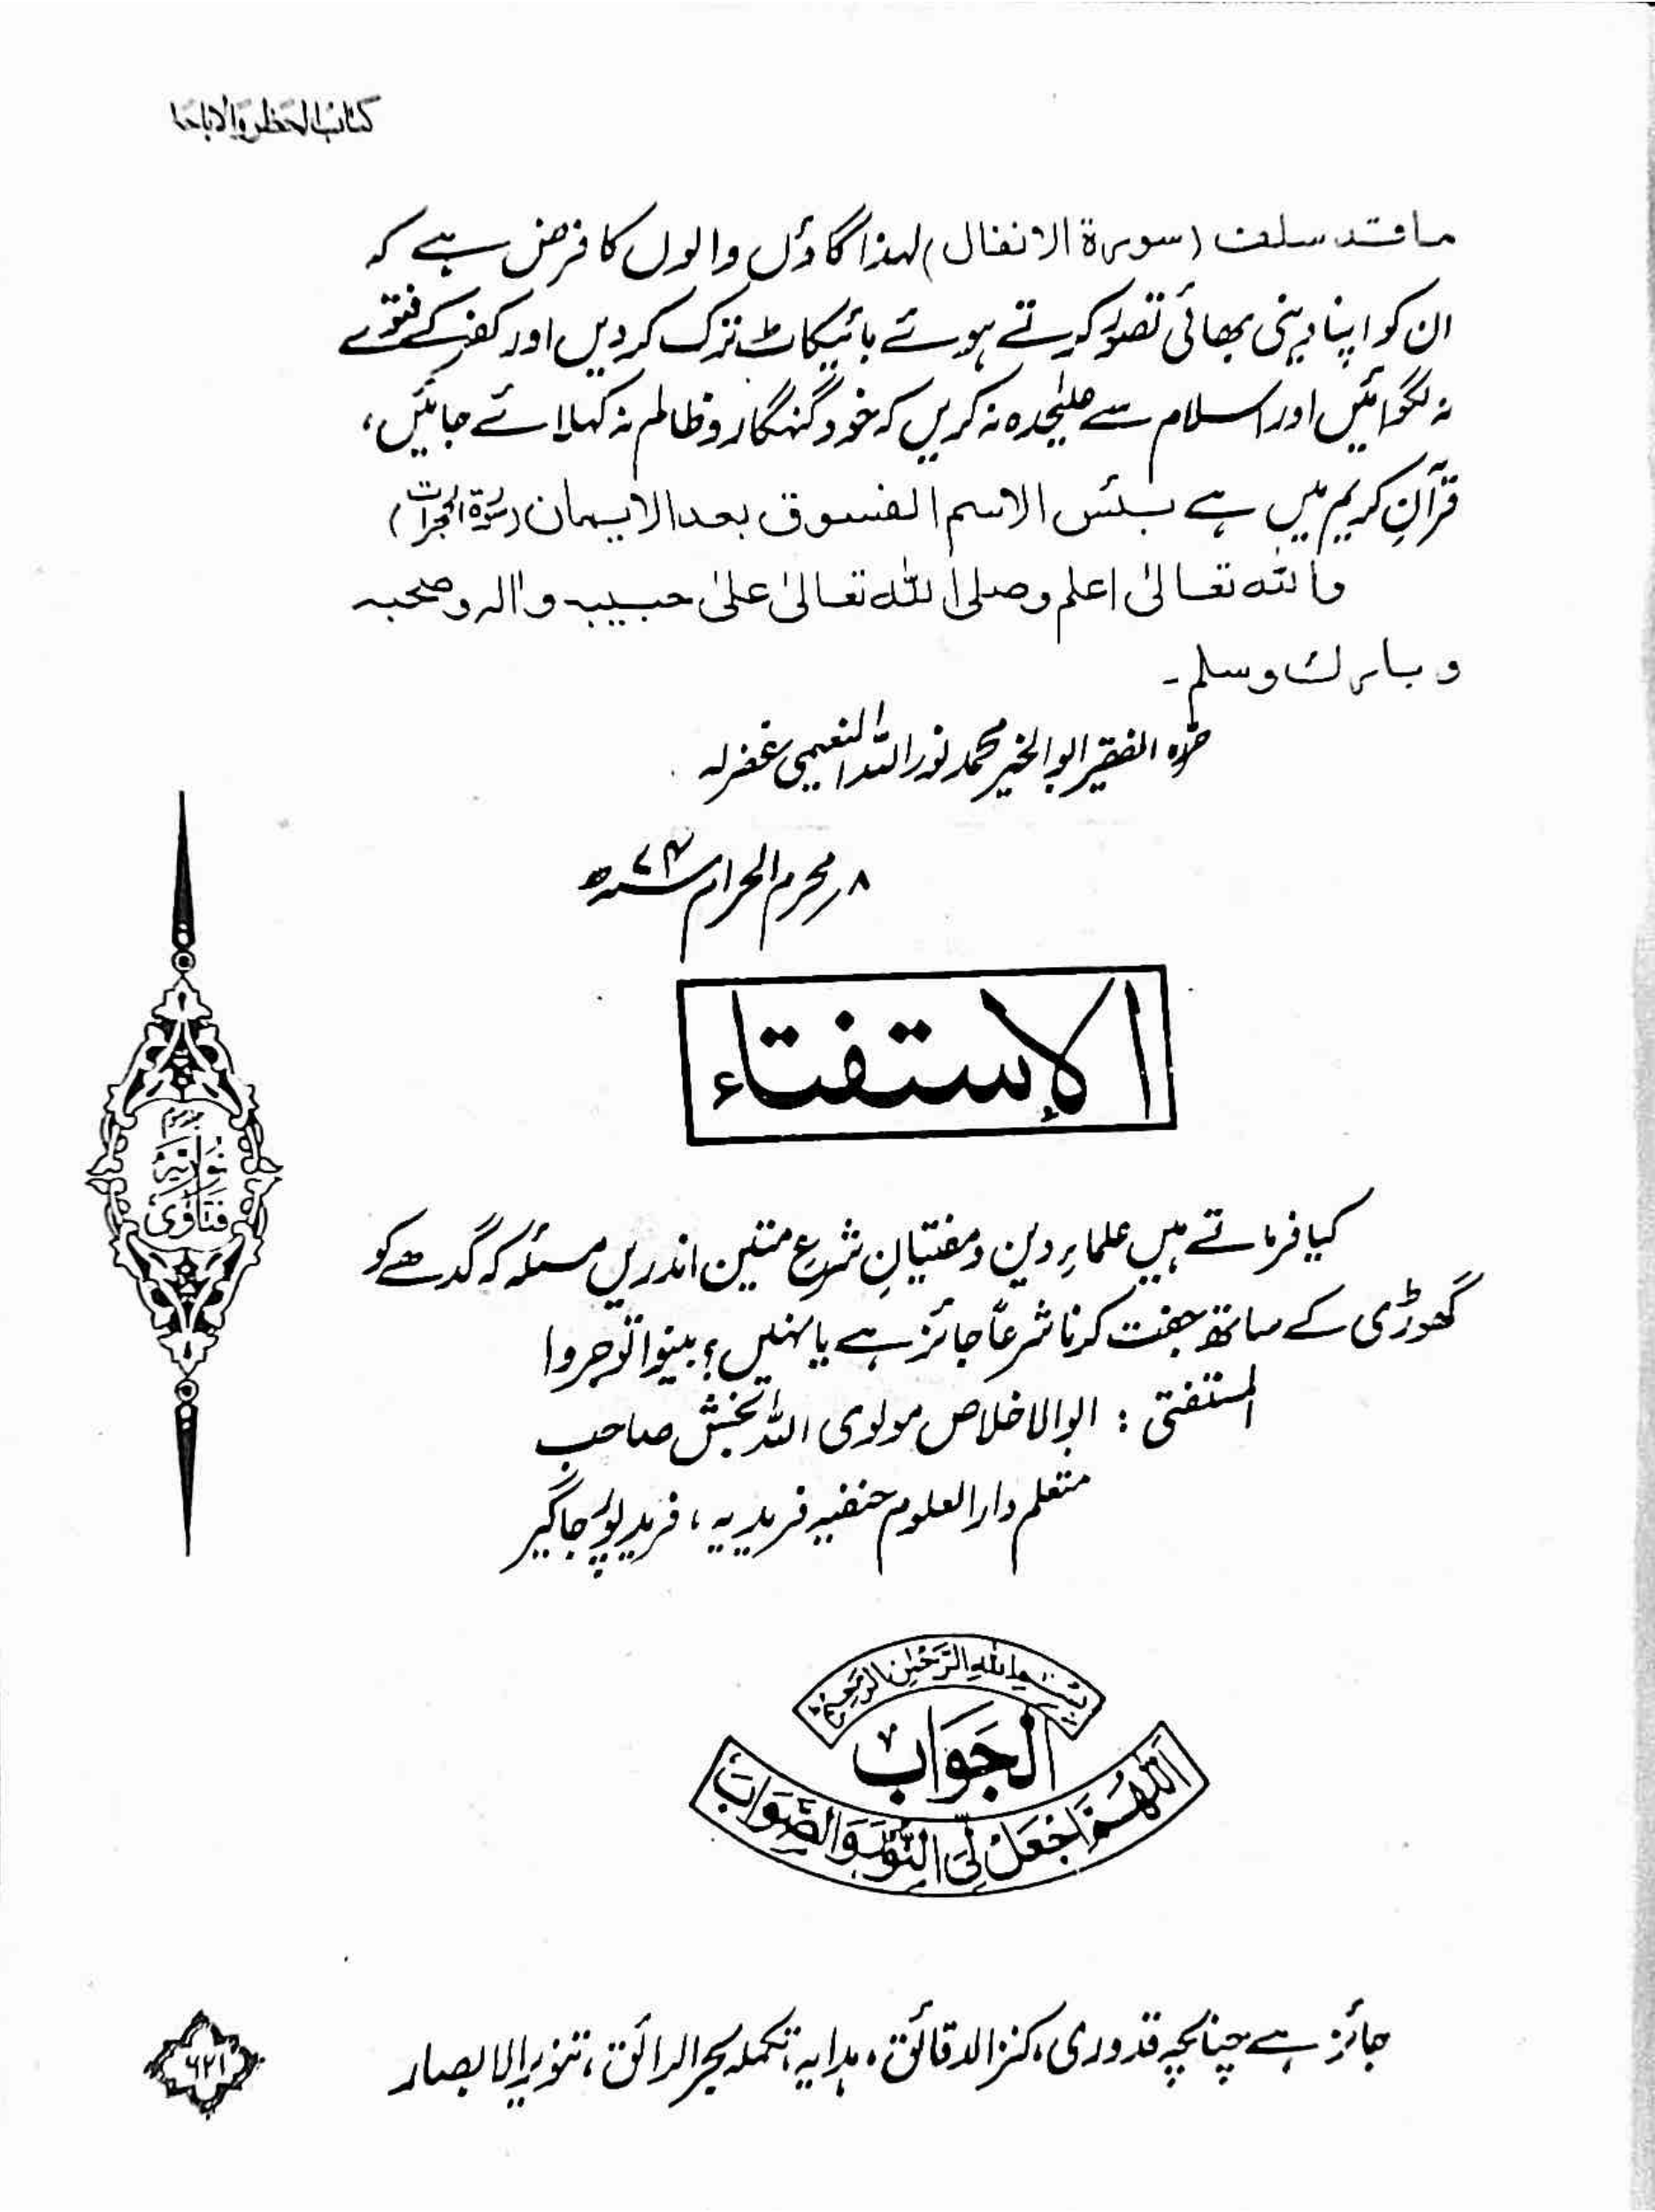 کتاب الحظر والاباحۃ
ماقد سلف (سورة الانفال) لہذا گاؤں والوں کا فرض ہے کہ
ان کو اپنا دینی بھائی تصور کرتے ہوئے بائیکاٹ ترک کر دیں اور کفر کے فتوے
نہ لگوائیں اور اسلام سے علیٰحدہ نہ کریں کہ خود گنہگار و ظالم نہ کہلائے جائیں،
قرآنِ کریم میں ہے بئس الاسم الفسوق بعد الایمان (سورۃ الحجرات)
واللہ تعالیٰ اعلم وصلی اللہ تعالیٰ علیٰ حبیبہ واٰلہ وصحبہ
وبارک وسلم۔
حررہ الفقیر ابو الخیر محمد نور اللہ النعیمی غفرلہ
۸ر محرم الحرام سنہ ۷۴ھ
الإستفتاء
کیا فرماتے ہیں علماءِ دین و مفتیانِ شرعِ متین اندریں مسئلہ کہ گدھے کو
گھوڑی کے ساتھ جفت کرنا شرعاً جائز ہے یا نہیں؟ بینوا توجروا
المستفتی : ابوالاخلاص مولوی اللہ بخش صاحب
متعلم دارالعلوم حنفیہ فریدیہ، فرید پور جاگیر
نوریہ
فتاوٰی
بسم اللہ الرحمٰن الرحیم
الجَوَاب
اَللّٰھُمَّ اجْعَلْ لِّیَ النُّوْرَ وَالصَّوَابَ
جائز ہے چنانچہ قدوری، کنز الدقائق، ہدایہ، تکملہ بحر الرائق، تنویر الابصار
۶۲۱